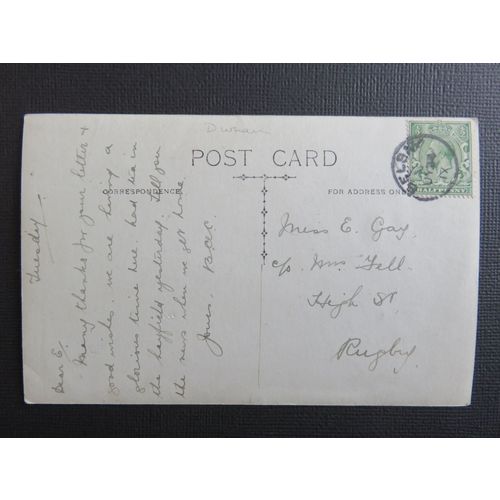 Durham
POST CARD
CORRESPONDENCE
FOR ADDRESS ONLY
HALFPENNY
Tuesday.
Dear E.
Many thanks for your letter &
good wishes. We are having a
glorious time here. had tea in
the hayfield yesterday. Tell you
the news when we get home
Yours.
Miss E. Gay,
c/o Mrs Fell.
High St.
Rugby.